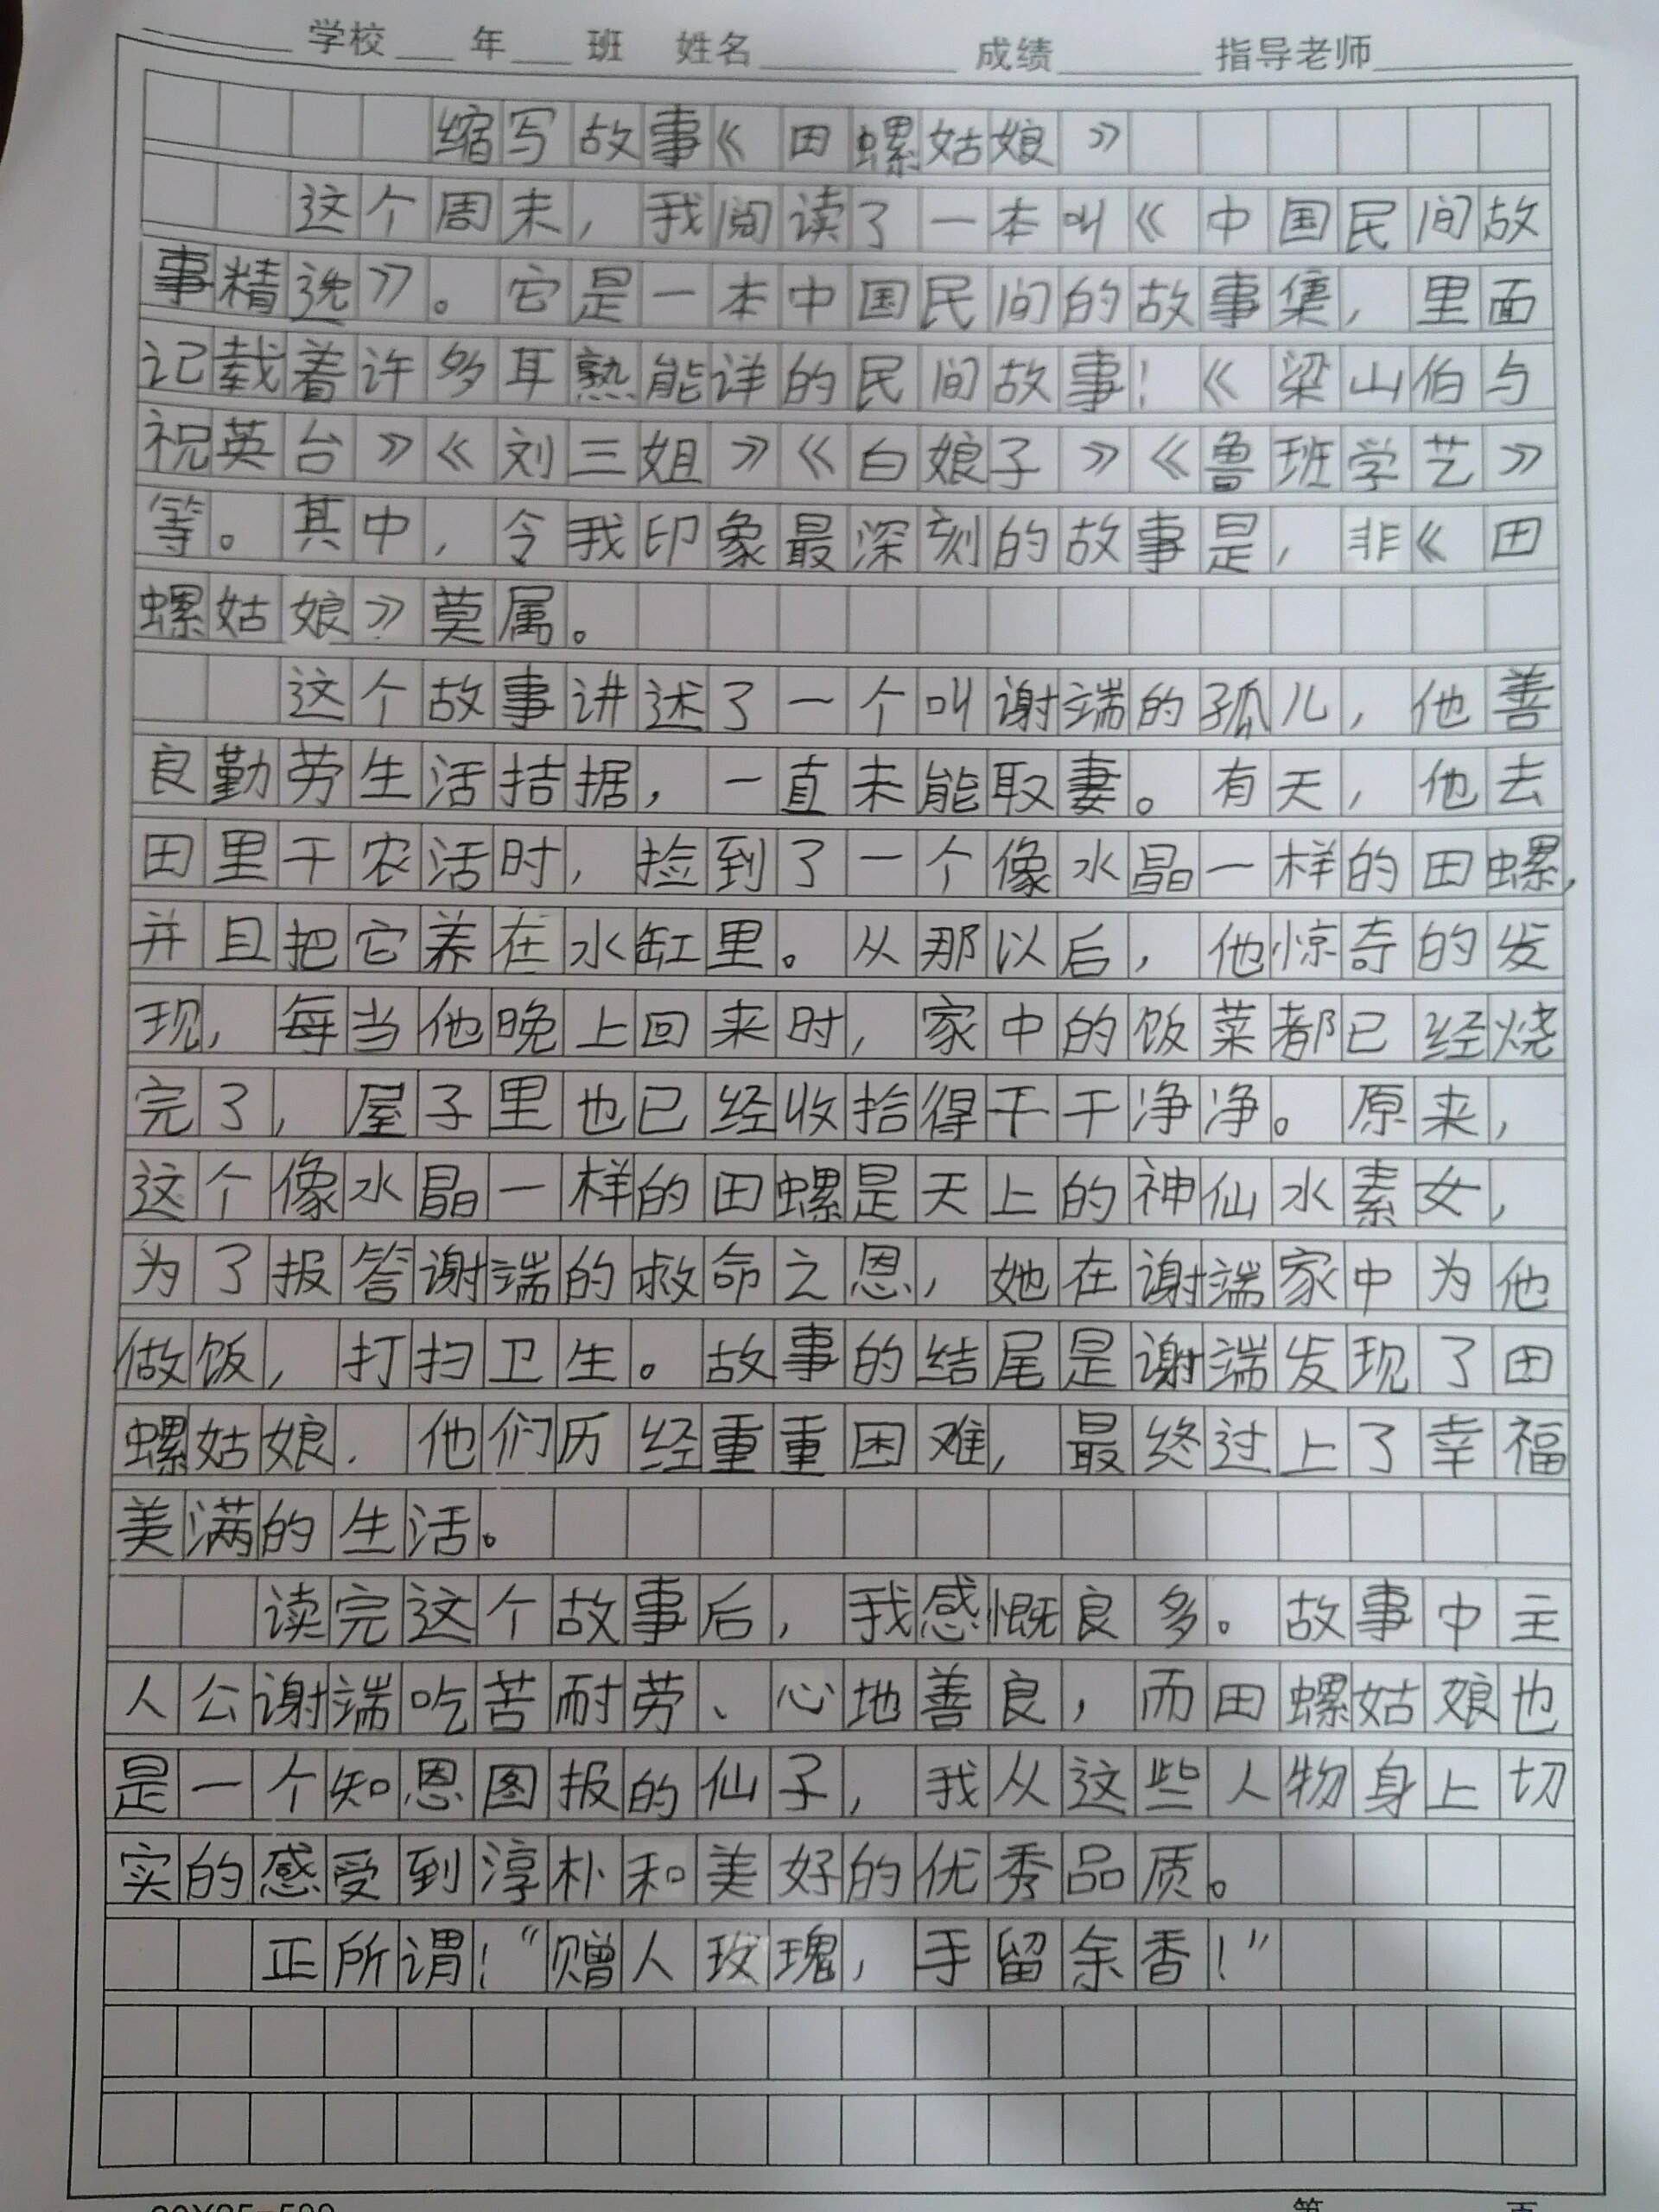 学校 年 班 姓名 成绩 指导老师
缩写故事《田螺姑娘》
这个周末，我阅读了一本叫《中国民间故
事精选》。它是一本中国民间的故事集，里面
记载着许多耳熟能详的民间故事！《梁山伯与
祝英台》《刘三姐》《白娘子》《鲁班学艺》
等。其中，令我印象最深刻的故事是，非《田
螺姑娘》莫属。
这个故事讲述了一个叫谢端的孤儿，他善
良勤劳生活拮据，一直未能取妻。有天，他去
田里干农活时，捡到了一个像水晶一样的田螺，
并且把它养在水缸里。从那以后，他惊奇的发
现，每当他晚上回来时，家中的饭菜都已经烧
完了，屋子里也已经收拾得干干净净。原来，
这个像水晶一样的田螺是天上的神仙水素女，
为了报答谢端的救命之恩，她在谢端家中为他
做饭，打扫卫生。故事的结尾是谢端发现了田
螺姑娘．他们历经重重困难，最终过上了幸福
美满的生活。
读完这个故事后，我感慨良多。故事中主
人公谢端吃苦耐劳、心地善良，而田螺姑娘也
是一个知恩图报的仙子，我从这些人物身上切
实的感受到淳朴和美好的优秀品质。
正所谓！“赠人玫瑰，手留余香！”